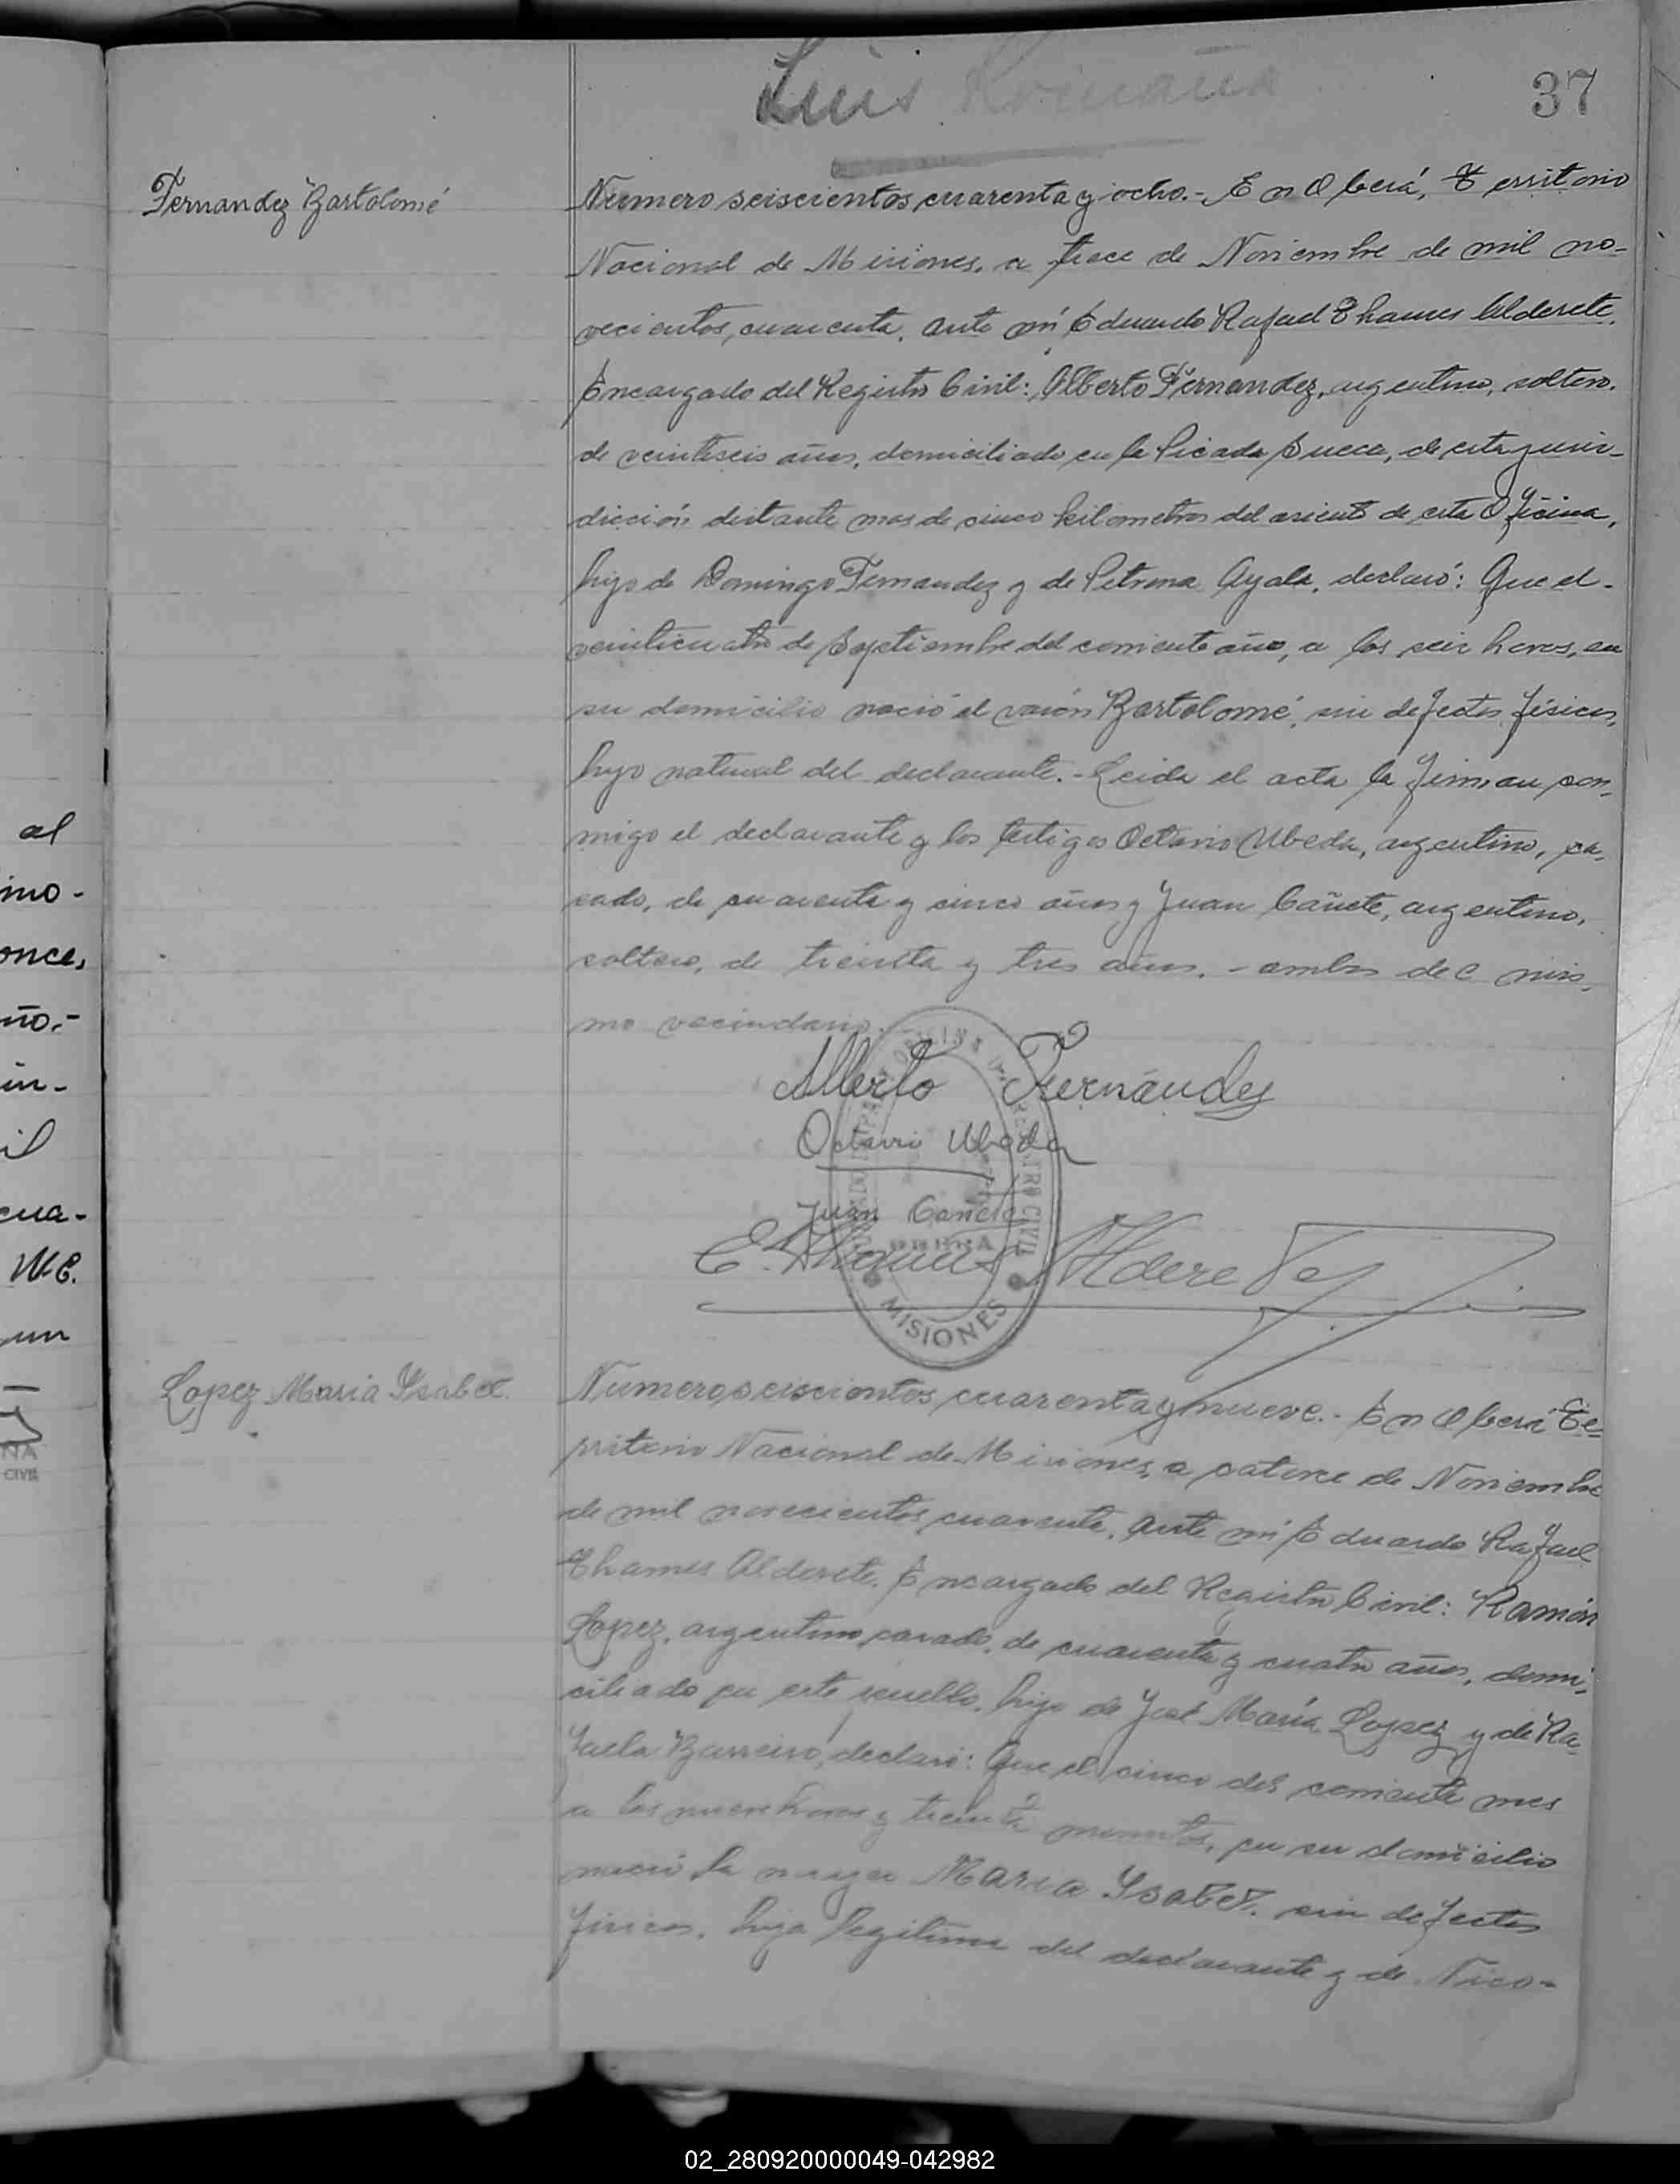 Luis Romaña
37
Fernandez Bartolomé
Numero seiscientos cuarenta y ocho.- En Oberá, Territorio
Nacional de Misiones, a trece de Noviembre de mil no-
vecientos, cuarenta, ante mí Eduardo Rafael Thames Alderete,
Encargado del Registro Civil: Alberto Fernandez, argentino, soltero,
de veintiseis años, domiciliado en la Picada Sueca, de esta juris-
dicción distante mas de cinco kilometros del asiento de esta Oficina,
hijo de Domingo Fernandez y de Petrona Ayala, declaró: Que el-
veinticuatro de Septiembre del corriente año, a las seis horas, en
su domicilio nació el varón Bartolomé, sin defectos físicos,
hijo natural del declarante.- Leida el acta la firman con-
migo el declarante y los testigos Octavio Ubeda, argentino, ca-
sado, de cuarenta y cinco años y Juan Cañete, argentino,
soltero, de treinta y tres años. - ambos del mis-
mo vecindario.
Alberto Fernández
Octavio Ubeda
Juan Cañete
E. Thames Alderete
REGISTRO CIVIL
MISIONES
Lopez Maria Ysabel
Numero seiscientos cuarenta y nueve.- En Oberá Te-
rritorio Nacional de Misiones, a catorce de Noviembre
de mil novecientos cuarenta, ante mí Eduardo Rafael
Thames Alderete, Encargado del Registro Civil: Ramón
Lopez, argentino casado, de cuarenta y cuatro años, domi-
ciliado en este pueblo, hijo de José María Lopez y de Ra-
faela Barreiro, declaró: Que el cinco del corriente mes
a las nueve horas y treinta minutos, en su domicilio
nació la mujer Maria Ysabel, sin defectos
físicos, hija legítima del declarante y de Nico-
al
imo-
once,
ño.-
in-
il
cua-
un
NA
CIVIL
02_280920000049-042982